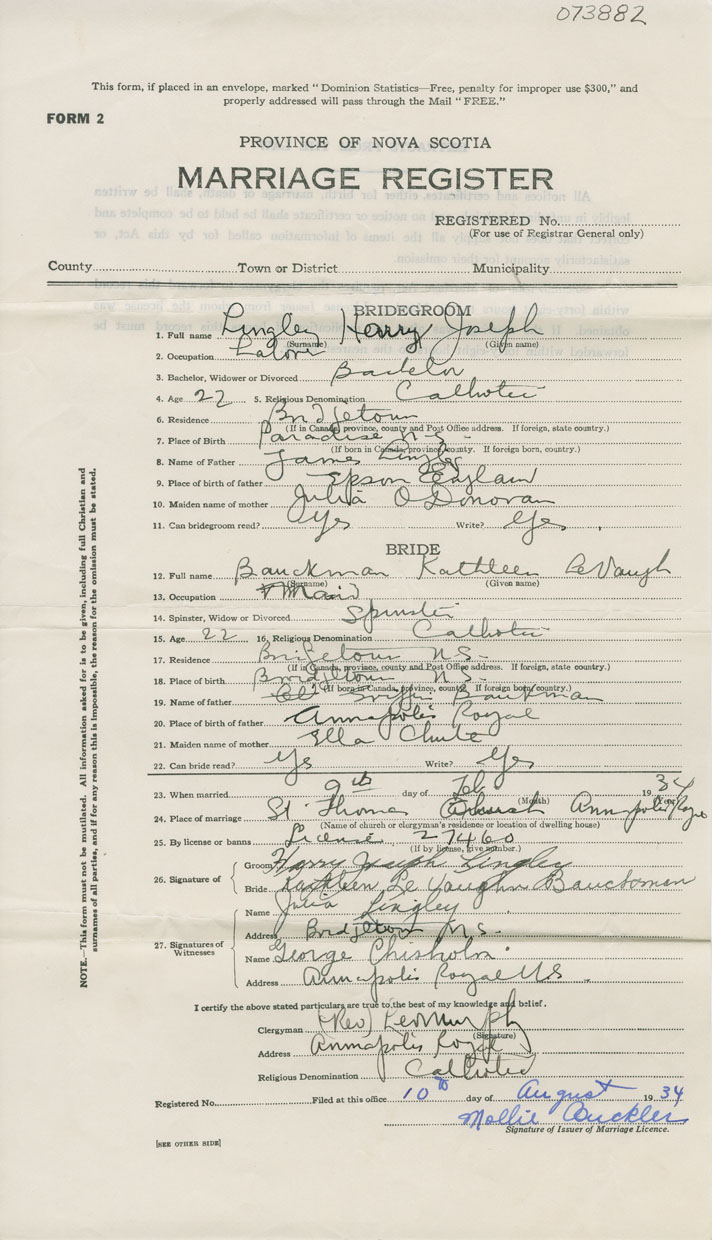 073882
This form, if placed in an envelope, marked "Dominion Statistics—Free, penalty for improper use $300," and
properly addressed will pass through the Mail "FREE."
FORM 2
PROVINCE OF NOVA SCOTIA
MARRIAGE REGISTER
REGISTERED No.
(For use of Registrar General only)
County Town or District Municipality
BRIDEGROOM
1. Full name Lingley Harry Joseph
(Surname) (Given name)
2. Occupation Labor
3. Bachelor, Widower or Divorced Bachelor
4. Age 22 5. Religious Denomination Catholic
6. Residence Bridgetown
(If in Canada, province, county and Post Office address. If foreign, state country.)
7. Place of Birth Paradise N.S.
(If born in Canada, province, county. If foreign born, country.)
8. Name of Father James Lingley
9. Place of birth of father Epson England
10. Maiden name of mother Julia O Donovan
11. Can bridegroom read? Yes Write? Yes
BRIDE
12. Full name Bauckman Kathleen LeVaugh
(Surname) (Given name)
13. Occupation Maid
14. Spinster, Widow or Divorced Spinster
15. Age 22 16. Religious Denomination Catholic
17. Residence Bridgetown N.S.
(If in Canada, province, county and Post Office address. If foreign, state country.)
18. Place of birth Bridgetown N.S.
(If born in Canada, province, county. If foreign born, country.)
19. Name of father Griffin Bauckman
20. Place of birth of father Annapolis Royal
21. Maiden name of mother Ella Chute
22. Can bride read? Yes Write? Yes
23. When married 9th day of Feb 1934
(Month) (Year)
24. Place of marriage St. Thomas Church Annapolis Royal
(Name of church or clergyman's residence or location of dwelling house)
25. By license or banns License 27460
(If by license, give number.)
26. Signature of
Groom Harry Joseph Lingley
Bride Kathleen Le Vaughn Bauckman
27. Signatures of Witnesses
Name Julia Lingley
Address Bridgetown N.S.
Name George Chisholm
Address Annapolis Royal N.S
I certify the above stated particulars are true to the best of my knowledge and belief.
Clergyman (Rev) Leo Murphy
(Signature)
Address Annapolis Royal
Religious Denomination Catholic
Registered No. Filed at this office 10th day of August 1934
Mollie Buckler
Signature of Issuer of Marriage Licence.
[SEE OTHER SIDE]
NOTE.—This form must not be mutilated. All information asked for is to be given, including full Christian and
surnames of all parties, and if for any reason this is impossible, the reason for the omission must be stated.